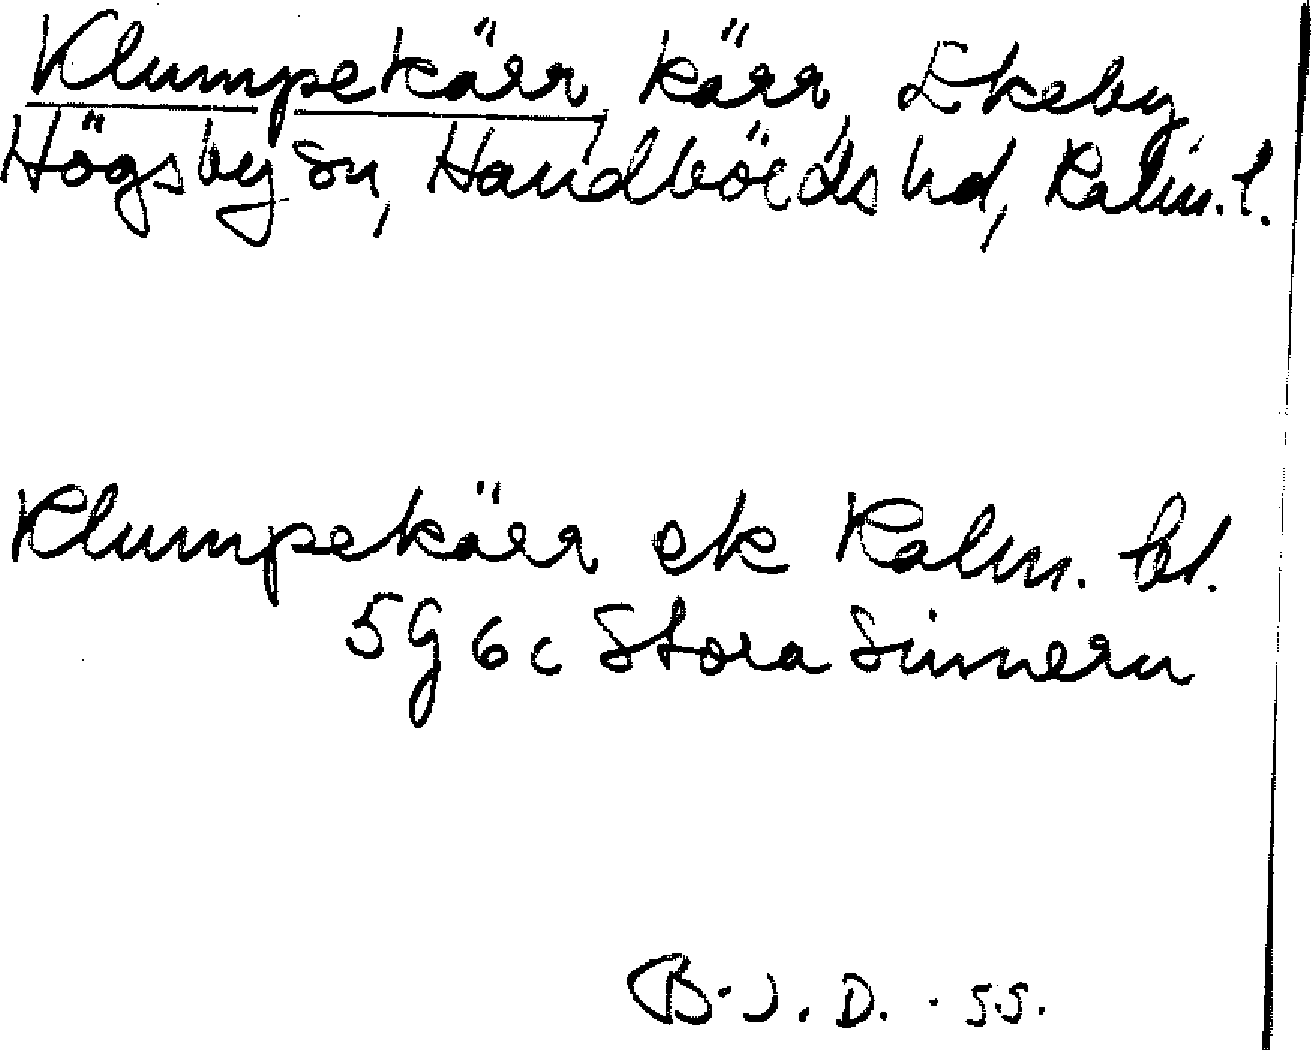 Klumpekärr, kärr, Ekeby,
Högsby sn, Handbörds hd, Kalm. l.
Klumpekärr ek Kalm. bl.
5G 6c Stora Sinnern
B.J.D. -55.